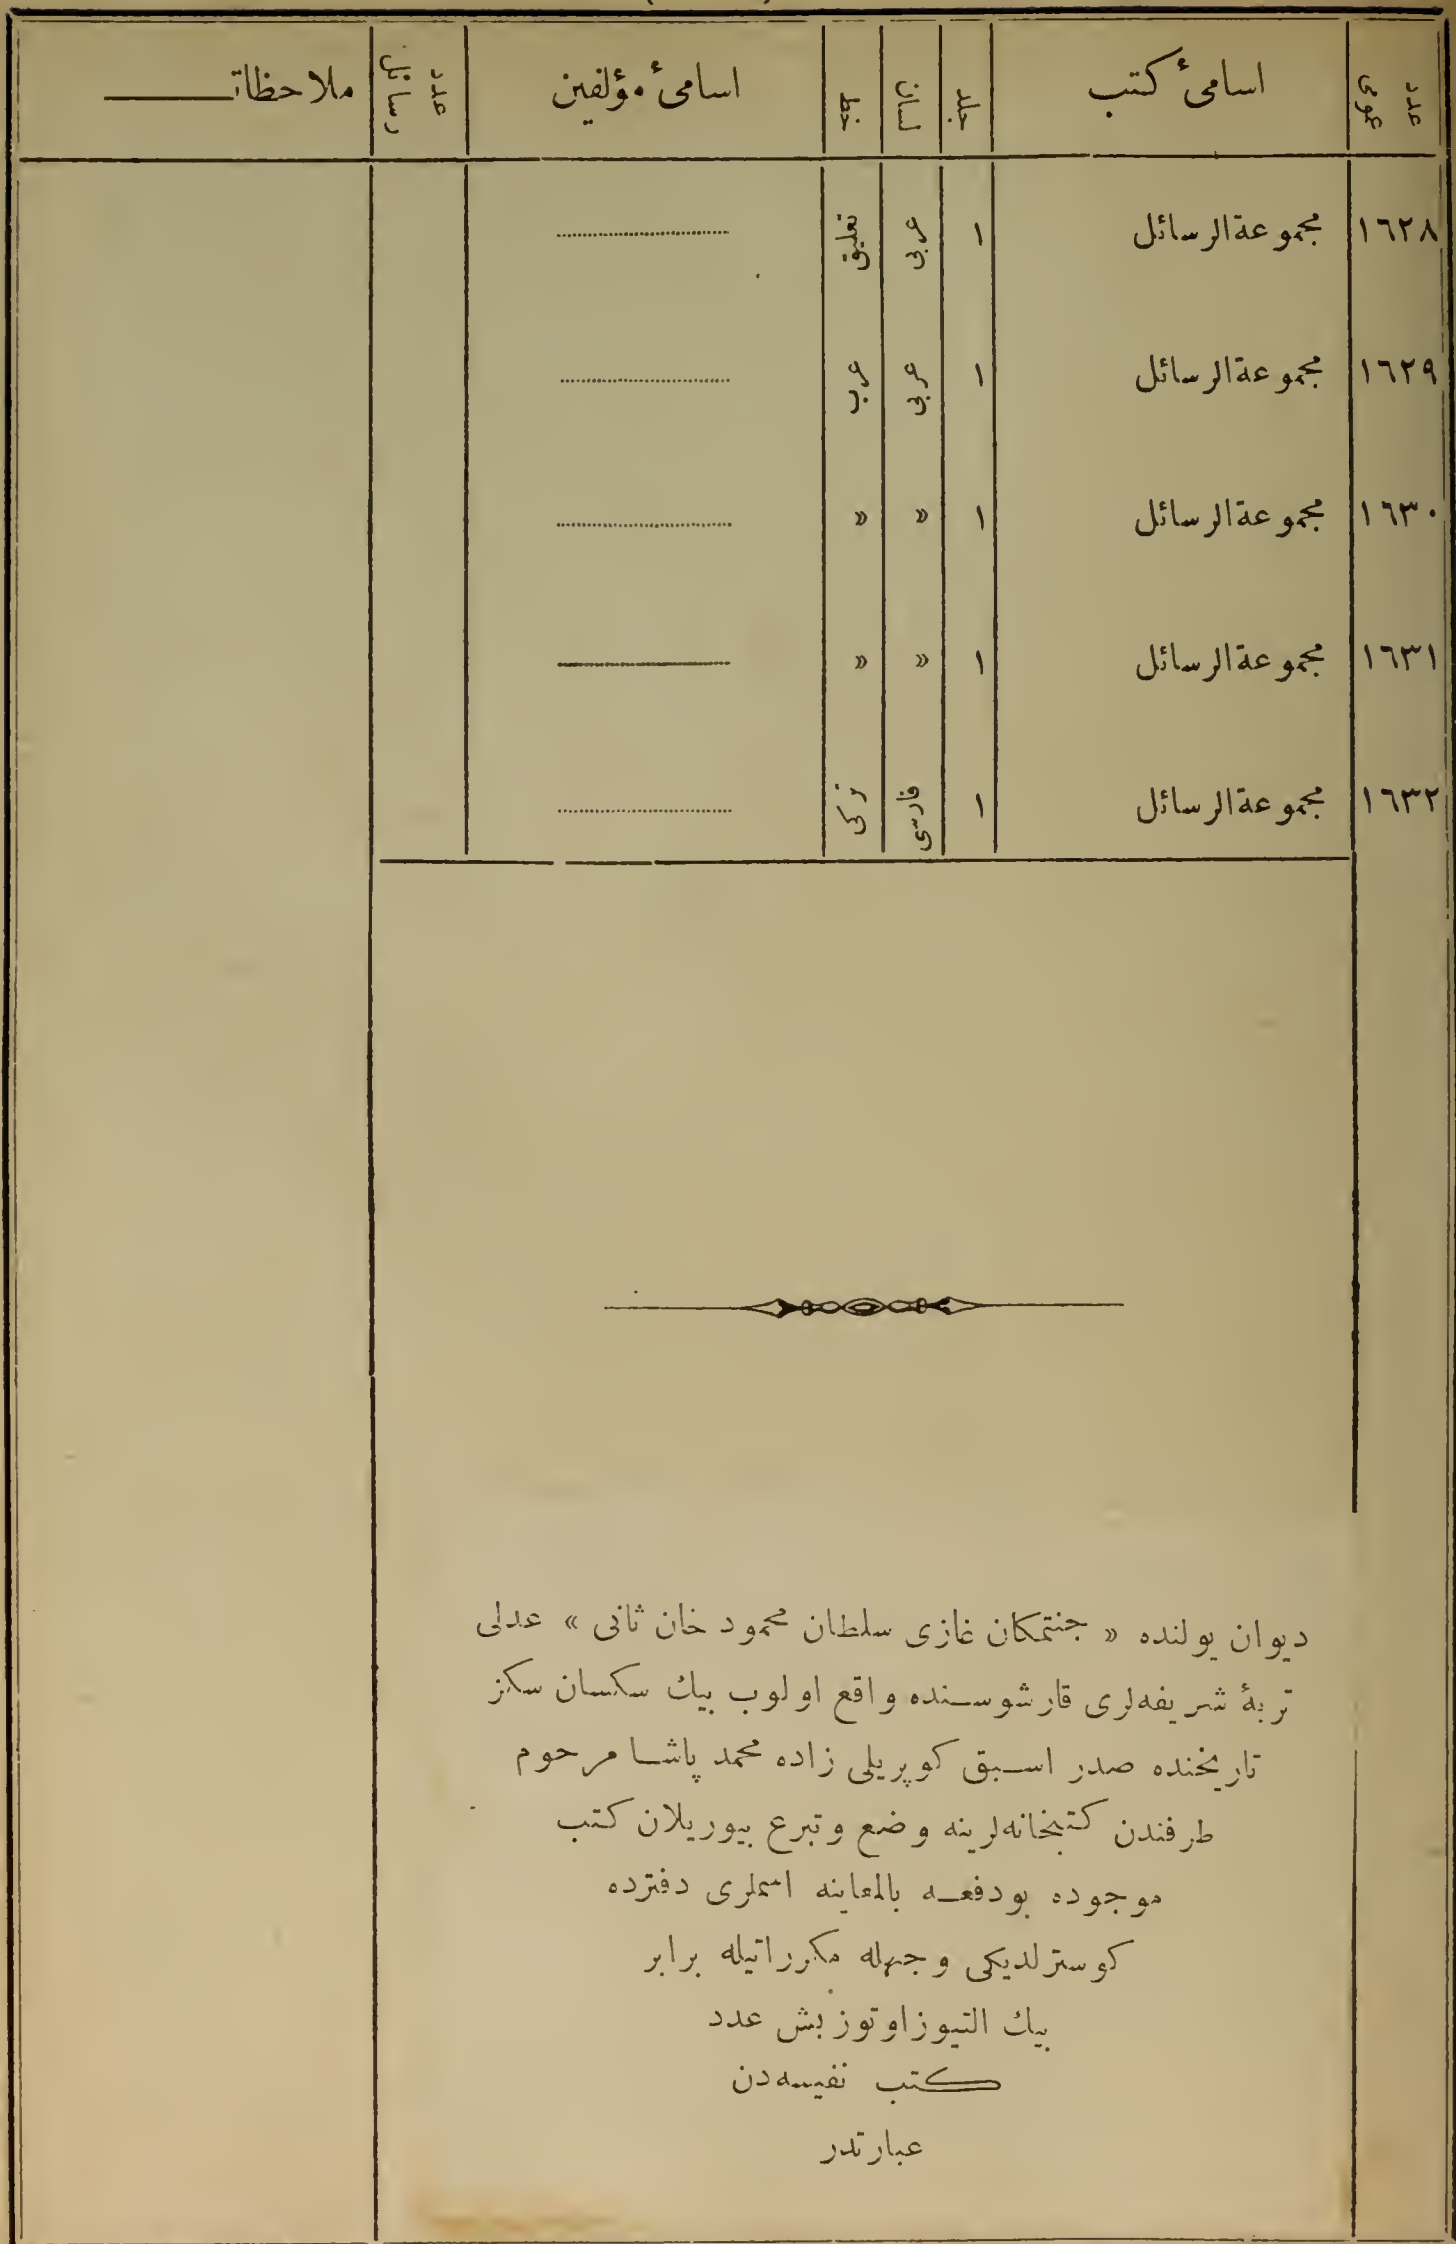 عدد عمومی اسامیٔ كتب جلد لسان خط اسامیٔ مؤلفین عدد رسائل ملاحظات
١٦٢٨ مجموعة الرسائل ١ عربی تعلیق
١٦٢٩ مجموعة الرسائل ١ عربی عرب
١٦٣٠ مجموعة الرسائل ١ » »
١٦٣١ مجموعة الرسائل ١ » »
١٦٣٢ مجموعة الرسائل ١ فارسی تركی
دیوان یولنده « جنتمكان غازی سلطان محمود خان ثانی » عدلی
تربهٔ شریفه‌لری قارشوسنده واقع اولوب بیك سكسان سكز
تاریخنده صدر اسبق كوپریلی زاده محمد پاشا مرحوم
طرفندن كتبخانه‌لرینه وضع وتبرع بیوریلان كتب
موجوده بودفعه بالمعاینه اسملری دفترده
كوسترلدیكی وجهله مكرراتیله برابر
بیك التیوز اوتوز بش عدد
كتب نفیسه‌دن
عبارتدر